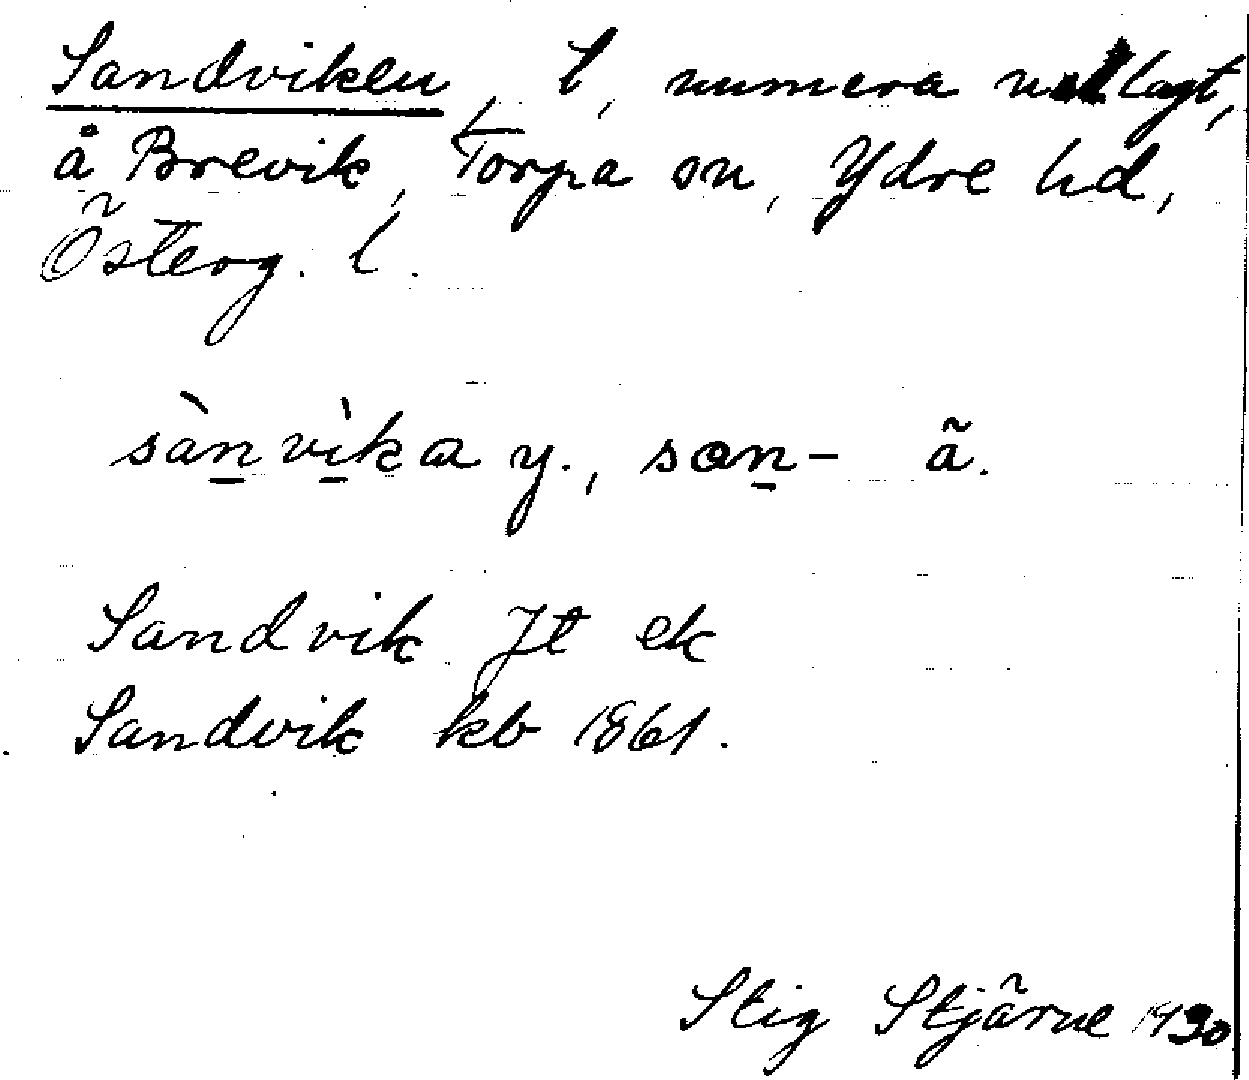 Sandviken, l, numera utlagt,
å Brevik, Torpa sn, Ydre hd,
Österg. l.
sàn̲vì̲ka y., son̲- ä.
Sandvik Jt ek
Sandvik kb 1861.
Stig Stjärne 1930